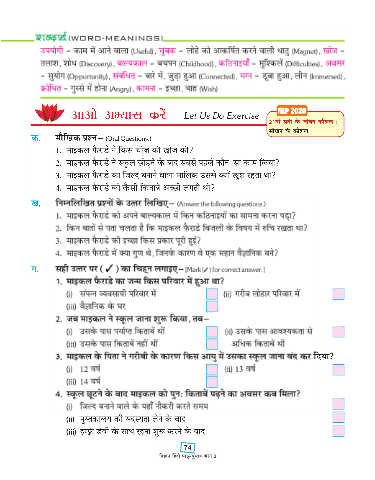 शब्दार्थ (WORD-MEANINGS)
उपयोगी – काम में आने वाला (Useful), चुंबक – लोहे को आकर्षित करने वाली धातु (Magnet), खोज –
तलाश, शोध (Discovery), बाल्यकाल – बचपन (Childhood), कठिनाइयाँ – मुश्किलें (Difficulties), अवसर
– सुयोग (Opportunity), संबंधित – बारे में, जुड़ा हुआ (Connected), मग्न – डूबा हुआ, लीन (Immersed),
क्रोधित – गुस्से में होना (Angry), कामना – इच्छा, चाह (Wish)
आओ अभ्यास करें Let Us Do Exercise
NEP 2020
21वीं सदी के जीवन कौशल
क. मौखिक प्रश्न– (Oral Questions:)
1. माइकल फैराडे ने किस चीज की खोज की?
2. माइकल फैराडे ने स्कूल छोड़ने के बाद सबसे पहले कौन-सा काम किया?
3. माइकल फैराडे का जिल्द बनाने वाला मालिक उससे क्यों खुश रहता था?
4. माइकल फैराडे को कैसी किताबें अच्छी लगती थीं?
ख. निम्नलिखित प्रश्नों के उत्तर लिखिए– (Answer the following questions:)
1. माइकल फैराडे को अपने बाल्यकाल में किन कठिनाइयों का सामना करना पड़ा?
2. किन बातों से पता चलता है कि माइकल फैराडे बिजली के विषय में रुचि रखता था?
3. माइकल फैराडे की इच्छा किस प्रकार पूरी हुई?
4. माइकल फैराडे में क्या गुण थे, जिनके कारण वे एक महान वैज्ञानिक बने?
ग. सही उत्तर पर (✓) का चिह्न लगाइए– [Mark (✓) for correct answer:]
1. माइकल फैराडे का जन्म किस परिवार में हुआ था?
(i) संपन्न व्यवसायी परिवार में (ii) गरीब लोहार परिवार में
(iii) वैज्ञानिक के घर
2. जब माइकल ने स्कूल जाना शुरू किया, तब–
(i) उसके पास पर्याप्त किताबें थीं (ii) उसके पास आवश्यकता से
(iii) उसके पास किताबें नहीं थीं अधिक किताबें थीं
3. माइकल के पिता ने गरीबी के कारण किस आयु में उसका स्कूल जाना बंद कर दिया?
(i) 12 वर्ष (ii) 13 वर्ष
(iii) 14 वर्ष
4. स्कूल छूटने के बाद माइकल को पुनः किताबें पढ़ने का अवसर कब मिला?
(i) जिल्द बनाने वाले के यहाँ नौकरी करते समय
(ii) पुस्तकालय की सदस्यता लेने के बाद
(iii) हम्फ्री डेवी के साथ रहना शुरू करने के बाद
74